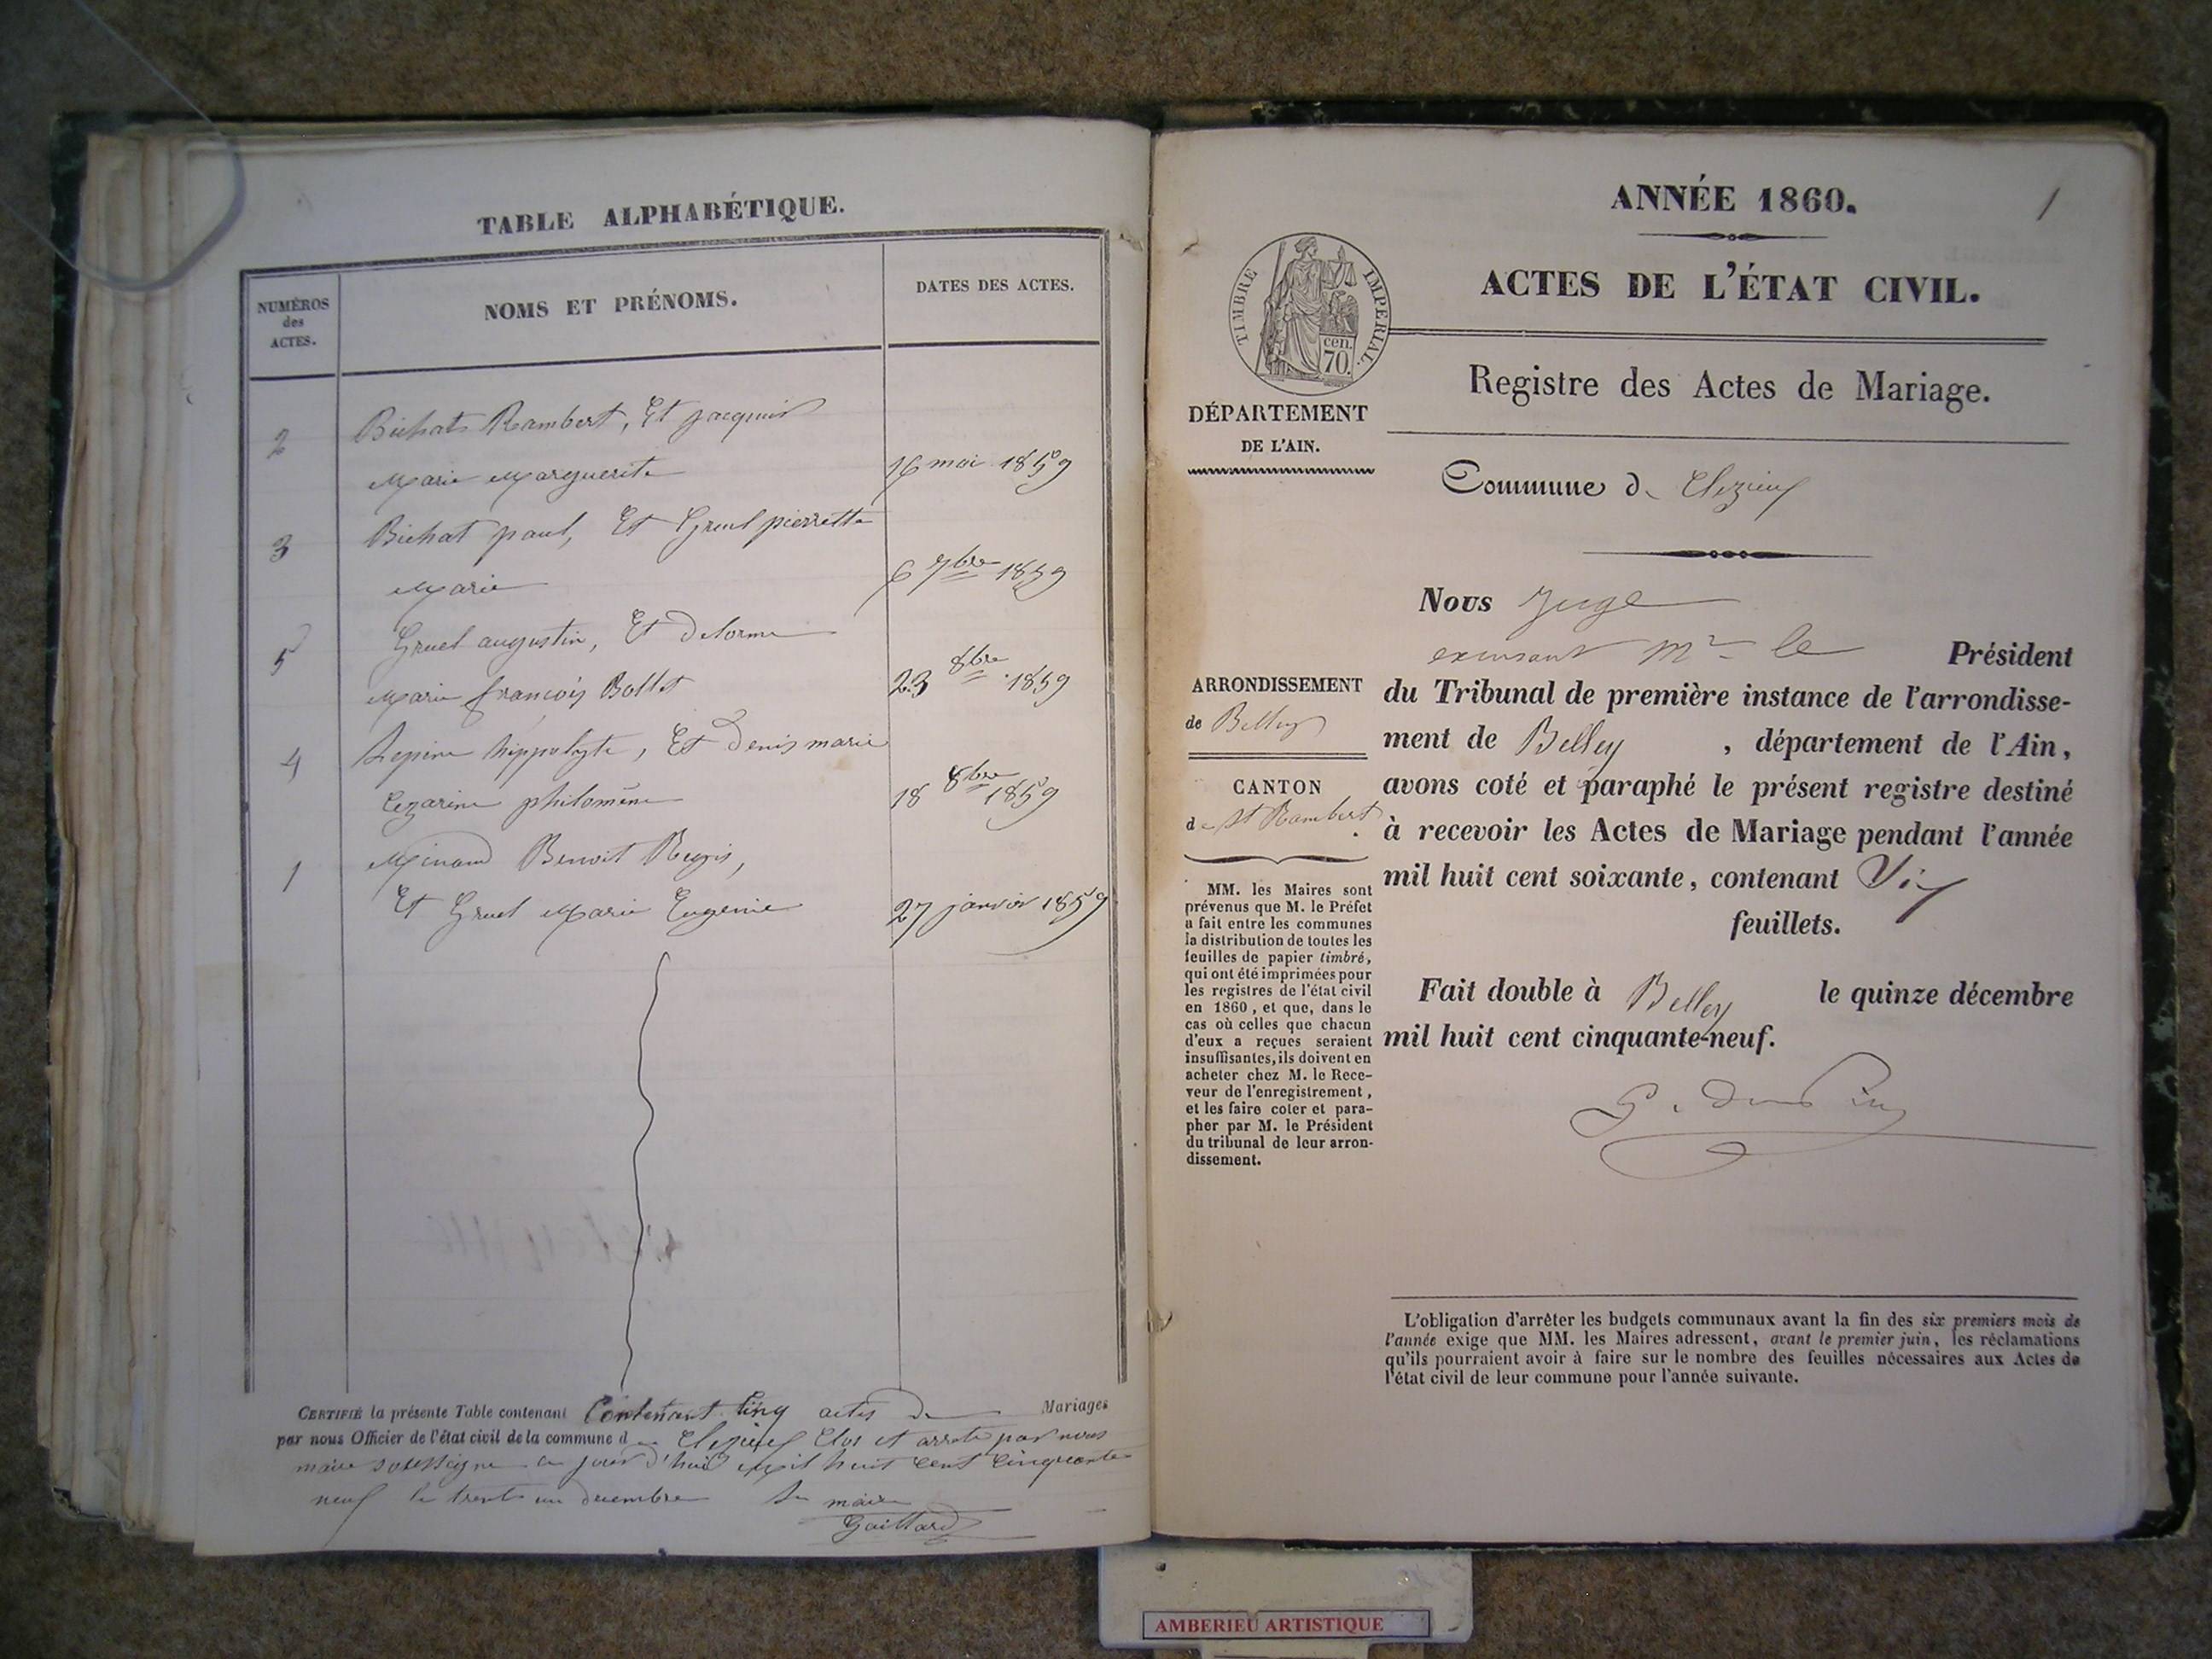 TABLE ALPHABÉTIQUE.
NUMÉROS
des
ACTES.
NOMS ET PRÉNOMS.
DATES DES ACTES.
2 Bichat Rambert, Et jacquis
Marie Marguerite 16 mai 1859
3 Bichat paul, Et Gruel pierrette
Marie 6 7bre 1859
5 Gruel augustin, Et delorme
Marie françois Bollet 23 8bre 1859
4 Lepine hippolyte, Et Denis marie
Cezarine philomène 18 8bre 1859
1 Minand Benoit Regis,
Et Gruel Marie Eugenie 27 janvier 1859
CERTIFIÉ la présente Table contenant Contenant Cinq actes de Mariages
par nous Officier de l'état civil de la commune d Clezieu Clos et arreté par nous
maire soussigné ce jour d'hui Mil huit cent Cinquante
neuf le trente un decembre Le maire
Gaillard
ANNÉE 1860. 1
ACTES DE L'ÉTAT CIVIL.
TIMBRE IMPÉRIAL.
cen.
70.
DÉPARTEMENT
DE L'AIN.
Registre des Actes de Mariage.
Commune de Clezieu
Nous Juge
excusant Mr le Président
du Tribunal de première instance de l'arrondisse-
ment de Belley , département de l'Ain,
avons coté et paraphé le présent registre destiné
à recevoir les Actes de Mariage pendant l'année
mil huit cent soixante, contenant Six
feuillets.
Fait double à Belley le quinze décembre
mil huit cent cinquante-neuf.
ARRONDISSEMENT
de Belley
CANTON
de St Rambert
MM. les Maires sont
prévenus que M. le Préfet
a fait entre les communes
la distribution de toutes les
feuilles de papier timbré,
qui ont été imprimées pour
les registres de l'état civil
en 1860, et que, dans le
cas où celles que chacun
d'eux a reçues seraient
insuffisantes, ils doivent en
acheter chez M. le Rece-
veur de l'enregistrement,
et les faire coter et para-
pher par M. le Président
du tribunal de leur arron-
dissement.
L'obligation d'arrêter les budgets communaux avant la fin des six premiers mois de
l'année exige que MM. les Maires adressent, avant le premier juin, les réclamations
qu'ils pourraient avoir à faire sur le nombre des feuilles nécessaires aux Actes de
l'état civil de leur commune pour l'année suivante.
AMBERIEU ARTISTIQUE